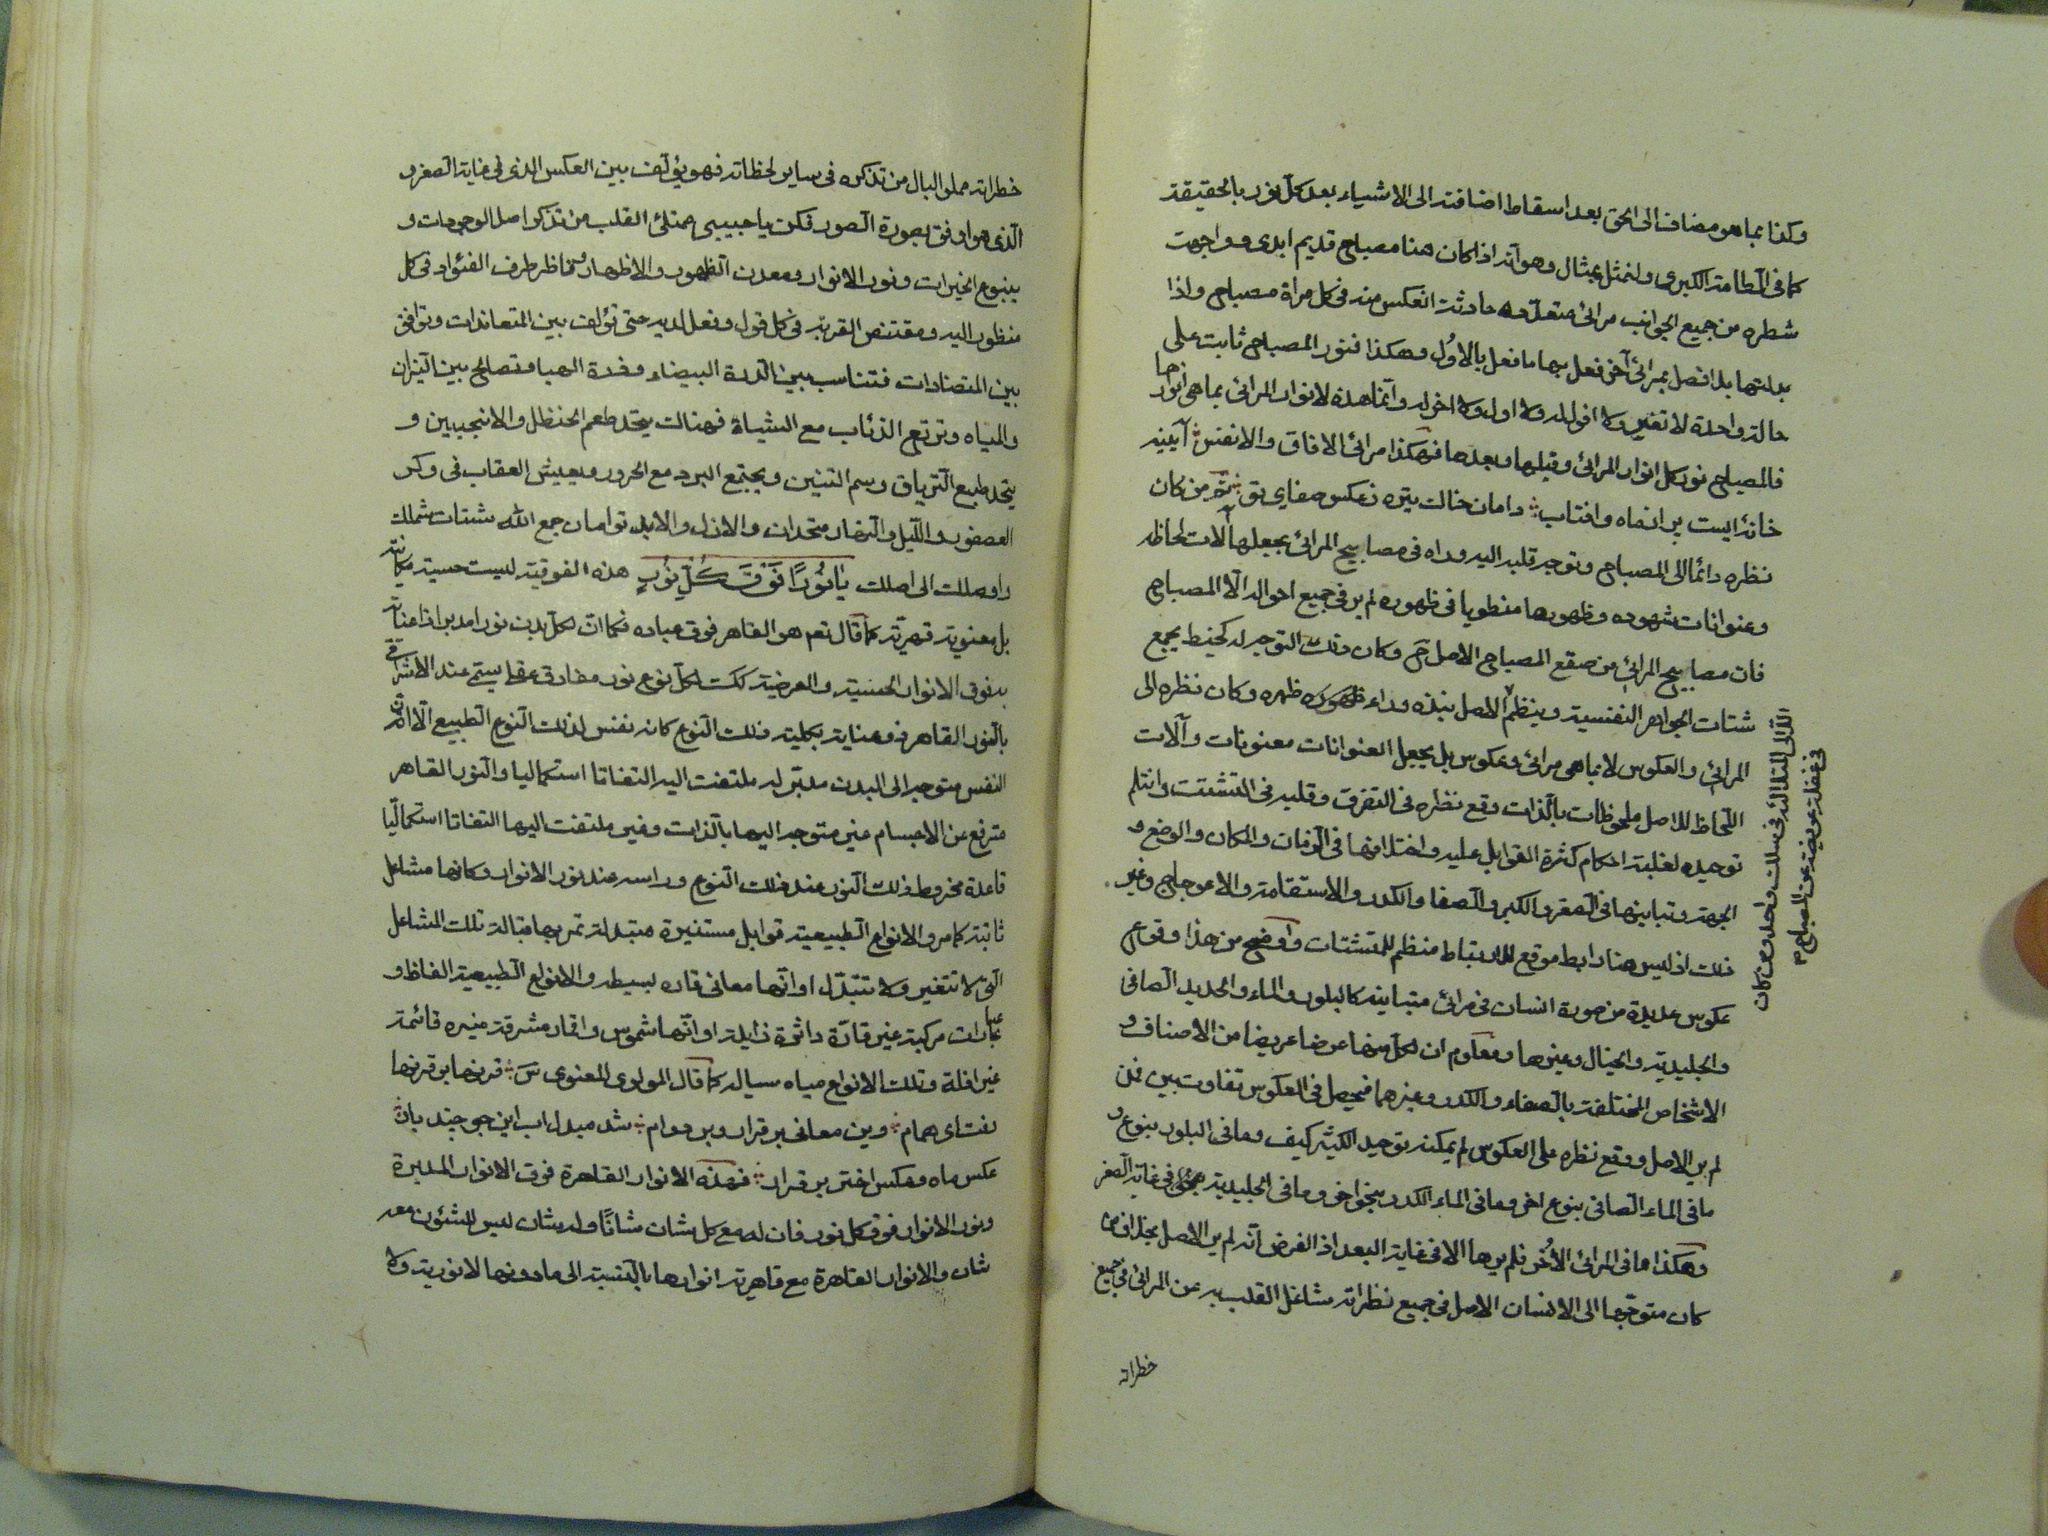 وكذا بما هو مضاف الى الحق بعد اسقاط اضافته الى الاشياء بعد كل نور بالحقيقة
كما فى الطامة الكبرى ولنمثل بمثال وهو انه اذا كان هنا مصباح قديم ابدى وواجهت
شطره من جميع الجوانب مرائى متعددة حادثة انعكس منه فى كل مراة مصباح واذا
بدلتها بل افصل بمرائى آخر فعل بها ما فعل بالاول وهكذا فنور المصباح ثابت على
حالة واحدة لا تغير ولا افول له ولا اول ولا اخر له وانما هذه لانوار المرائى بما هى انوارها
فالمصباح نور كل انوار المرائى وقبلها وبعدها فهكذا مرائى الافاق والانفس آيينه
خانه ايست پر از ماه وافتاب دامان خاك تيره زعكس صفاى تو ثم من كان
نظره دائما الى المصباح وتوجه قلبه اليه وراه فى مصابيح المرائى بجعلها آلات لحاظه
وعنوانات شهوده وظهورها منطويا فى ظهوره لم ير فى جميع احواله الا المصباح
فان مصابيح المرائى من صقع المصباح الاصل ح وكان وقلت التوجه له كخيط يجمع
شتات الجواهر النفيسة وينظم الاصل نبذه وراء ظهوره ظهره وكان نظره الى
اللآلى المتلالئة فى سلك واحد ومن كان
فى غفلة عريضة عن المصباح م
المرائى والعكوس لا بما هى مرائى وعكوس بل يجعل العنوانات معنونات وآلات
اللحاظ للاصل ملحوظات بالذات وقع نظره فى التفرق وقلبه فى التشتت وانثلم
توحيده لغلبة احكام كثرة القوابل عليه واختلافها فى الزمان والمكان والوضع و
الجهة وتباينها فى الصغر والكبر والصفا والكدر والاستقامة والاعوجاج وغير
ذلك اذ ليس هنا رابط موقع للارتباط منظم للمتشتات واوضح من هذا وقوع
عكوس عديدة من صورة انسان فى مرائى متباينة كالبلور والماء والحديد الصافى
والجليدية والخيال وغيرها ومعلوم ان لكل منها عرضا عريضا من الاصناف و
الاشخاص المختلفة بالصفاء والكدر وغيرهما فيحصل فى العكوس تفاوت بين فمن
لم ير الاصل ووقع نظره على العكوس لم يمكنه توحيد الكثير كيف وما فى البلور بنوع و
ما فى الماء الصافى بنوع اخر وما فى الماء الكدر بنحو اخر وما فى الجليدية فى غاية الصغر
وهكذا ما فى المرائى الأخر فلم يرها الا فى غاية البعد اذ الفرض انه لم ير الاصل بخلاف من
كان متوجها الى الانسان الاصل فى جميع نظراته شاغل القلب به عن المرائى فى جميع
خطراته
خطراته مملو البال من تذكره فى ساير لحظاته فهو يؤلف بين العكس الذى فى غاية الصغر و
الذى هو اوفق بصورة الصور فكن يا حبيبى ممتلئ القلب من تذكر اصل الوجودات و
ينبوع الخيرات ونور الانوار ومعدن الظهور والاظهار وناظر طرف الفؤاد فى كل
منظور اليه ومقتنص القربة فى كل قول وفعل لديه حتى تؤلف بين المتعاندات وتوافق
بين المتضادات فتناسب بين الدرة البيضاء وذرة الهبا وتصالح بين النيران
والمياه وترتع الذئاب مع الشياة فهنالك يتحد طعم الحنظل والانجبين و
يتحد طبع الترياق وسم التنين ويجتمع البرد مع الحرور ويعيش العقاب فى وكر
العصفور والليل والنهار متحدان والازل والابد توامان جمع الله شتات شملك
واوصلك الى اصلك يٰا نُورًا فَوْقَ كُلِّ نُورٍ هذه الفوقية ليست حسية مكانية
بل معنوية قهرية كما قال تعم هو القاهر فوق عباده فكما ان لكل بدن نورا مدبرا ذا عناية
به فوق الانوار الحسية والعرضية كك لكل نوع نور مفارق عقلى يسمى عند الاشراقى
بالنور القاهر ذو عناية بكلية ذلك النوع كانه نفس لذلك النوع الطبيعى الا ان
النفس متوجه الى البدن مدبر له ملتفت اليه التفاتا استكماليا والنور القاهر
مترفع عن الاجسام غير متوجه اليها بالذات وغير ملتفت اليها التفاتا استكماليا
قاعدة مخروط ذلك النور عند ذلك النوع وراسه عند نور الانوار وكانها مشاعل
ثابتة كما مر والانواع الطبيعية قوابل مستنيرة متبدلة تمر بها قبالة تلك المشاعل
التى لا تتغير ولا تتبدل او انها معانى قاره بسيطه والانواع الطبيعية الفاظ و
عبارات مركبة غير قارة داثرة زايلة او انها شموس واقمار مشرقة منيره قائمة
غير افلة وتلك الانواع مياه سياله كما قال المولوى المعنوى س قرنها بر قرنها
رفت اى همام وين معانى بر قرار وبر دوام شد مبدل اب اين جو چند بار
عكس ماه وعكس اختر بر قرار فهذه الانوار القاهرة فوق الانوار المدبرة
ونور الانوار فوق كل نور فان له مع كل شان شانا وله شان ليس للشئون معه
شان والانوار القاهرة مع قاهرية انوارها بالنسبة الى ما دونها لا نورية ولا